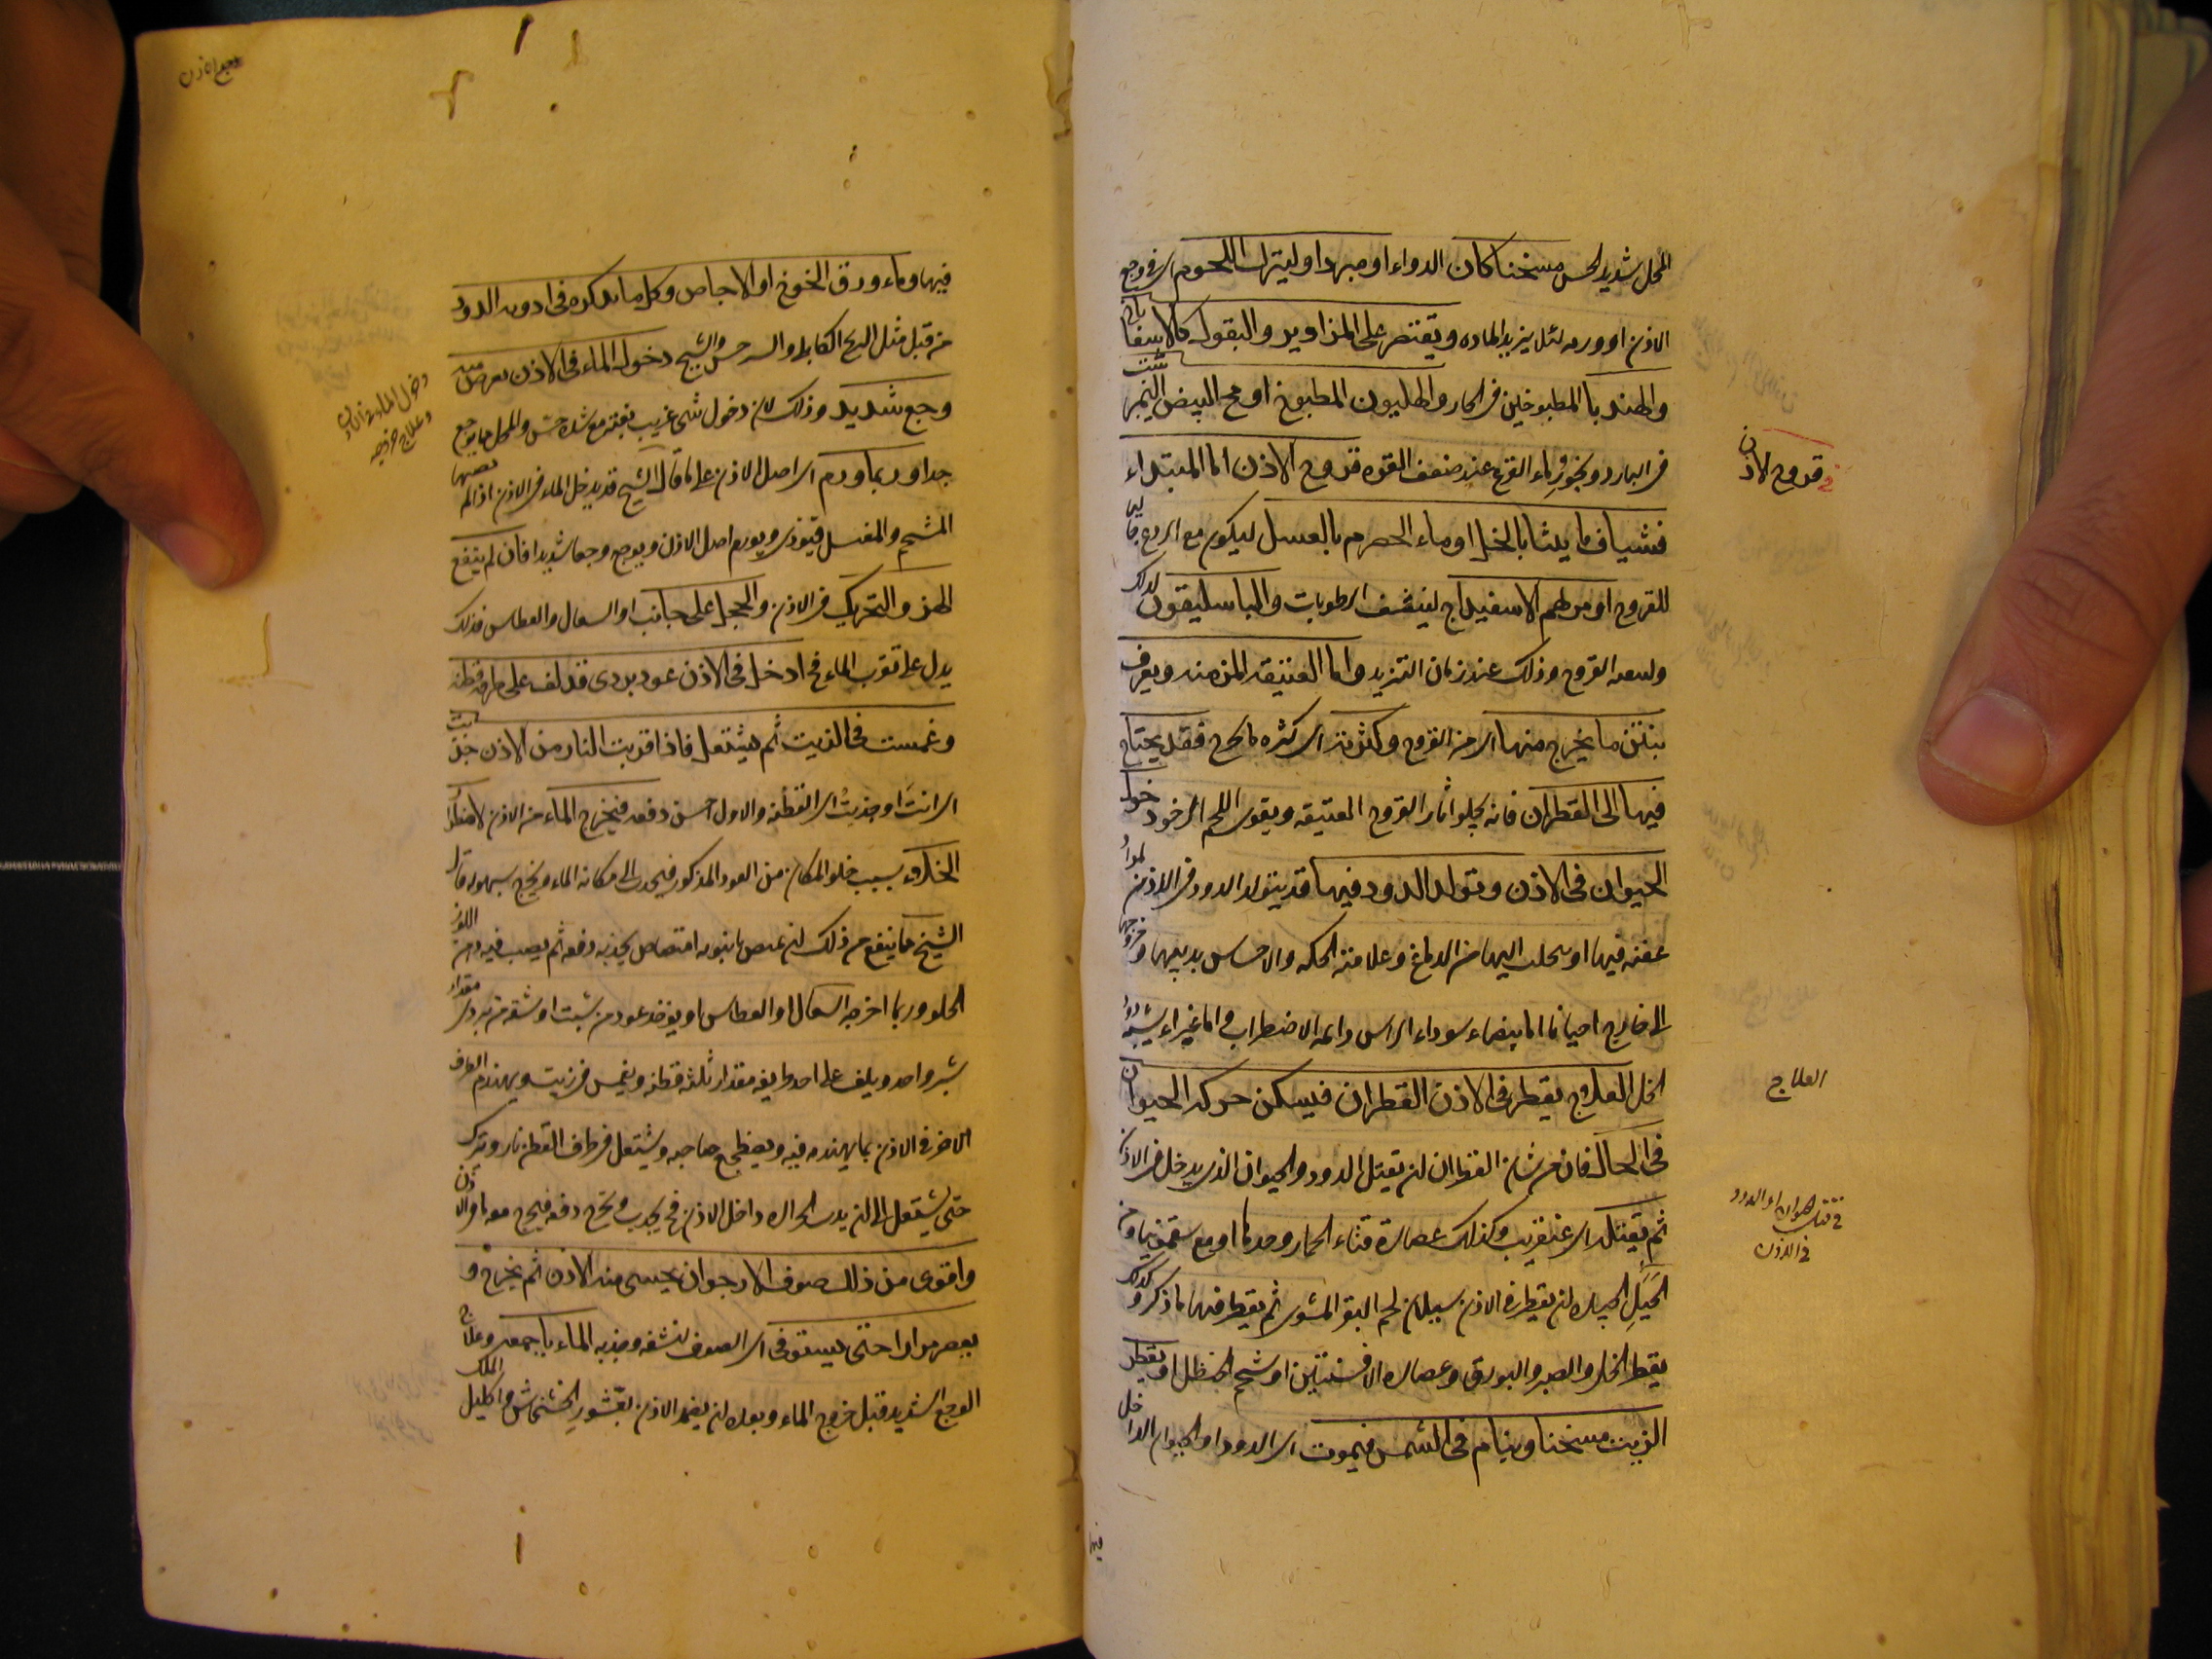 المحل شديد الحس مسخنا كان الدواء او مبردا وليترك اللحوم اى فى وجع
الاذن او ورمه لئلا يزيد الماده ويقتصر على المزاوير والبقول كالاسفاناخ
والهندبا المطبوخين فى الحار والهليون المطبوخ او مح البيض النيمبرشت
فى البارد وبخور ماء القرع عند ضعف القوه قروح الاذن اما المبتداء
فشياف ماميثا بالخل او ماء الحصرم بالعسل ليكون مع الردع جاليا
للقروح او مرهم الاسفيداج لينشف الرطوبات والباسليقون لذلك
ولسعه القروح وذلك عند زمان التزيد واما العتيقه المزمنه ويعرف
بنتن ما يخرج منها اى من القروح وكثرته اى كثره ما يخرج فقد يحتاج
فيها الى القطران فانه يجلو اثار القروح العتيقه ويقوى اللحم الرخو دخول
الحيوان فى الاذن وتولد الدود فيها قد يتولد الدود فى الاذن لمواد
عفنه فيها او تتحلب اليها من الدماغ وعلامته الحكه والاحساس بدبيبها وخروجها
الى خارج احيانا اما بيضاء سوداء الراس دايمه الاضطراب واما غبراء يشبه دود
الخل العلاج يقطر فى الاذن القطران فيسكن حركه الحيوان
فى الحال فان من شان القطران ان يقتل الدود والحيوان الذى يدخل فى الاذن
ثم يقتله اى عن قريب وكذلك عصارة قثاء الحمار وحدها او مع سقمونيا ومن
الحيل الجيده ان يقطر فى الاذن سيلان لحم البقر المشوى ثم يقطر فيها ما ذكر وكذلك
يقطر الخل والصبر والبورق وعصاره الافسنتين او شحم الحنظل او يقطر
الزيت مسخنا وينام فى الشمس فيموت اى الدود او الحيوان الداخل
قروح الاذن
العلاج
فى قتل الهوام او الدود
فى الاذن
فيها
وجع الاذن
فيها وماء ورق الخوخ او الاجاص وكل ما نذكره فى ادويه الدود
من قبل مثل البرنج الكابلى والسرخس والشيح دخول الماء فى الاذن يعرض منه
وجع شديد وذلك لان دخول شى غريب بغته مع شده حس والمحل مما يوجع
جدا وربما ورم اى اصل الاذن على ما قال الشيخ قد يدخل الماء فى الاذن اذا لم يصنها
المستحم والمغتسل فيوذى ويورم اصل الاذن ويوجع وجعا شديدا فان لم ينفع
الهز والتحريك فى الاذن والحجل على جانب او السعال والعطاس فذلك
يدل على تقرب الماء فح ادخل فى الاذن عود بردى قد لف على طرفه قطنه
وغمست فى الزيت ثم يشتعل فاذا قربت النار من الاذن جذبت
اى انت او جذبت اى القطنه والاول احسن دفعه فيخرج الماء من الاذن لاضطرار
الخلاء بسبب خلو المكان من العود المذكور فيجذب الى مكانه الماء ويخرج بسهوله قال
الشيخ مما ينفع من ذلك ان يمص بانبوبه امتصاص يجذبه دفعه ثم يصب فيه دهن اللوز
الحلو وربما اخرجه السعال او العطاس او يوخذ عود من شبت او شقه من بردى مقدار
شبر واحد ويلف على احد طرفيه مقدار ثلثه قطنه ويغمس فى زيت ويهندم الطرف
الاخر فى الاذن بما يهندم فيه ويضطجع صاحبه ويشتعل فى طرف القطن نار ويترك
حتى يشتعل الى ان يدب الحراره داخل الاذن فح يجذب ويخرج دفعه فيخرج معه ماء الاذن
واقوى من ذلك صوف الارجوان يحشى منه الاذن ثم يخرج و
يعصر مرارا حتى يستوفى اى الصوف نشفه وجذبه الماء باجمعه وعلاج
الوجع الشديد قبل خروج الماء وبعده ان يضمد الاذن بقشور الخشخاش واكليل الملك
دخول الماء فى الاذن
وعلاج خروجه